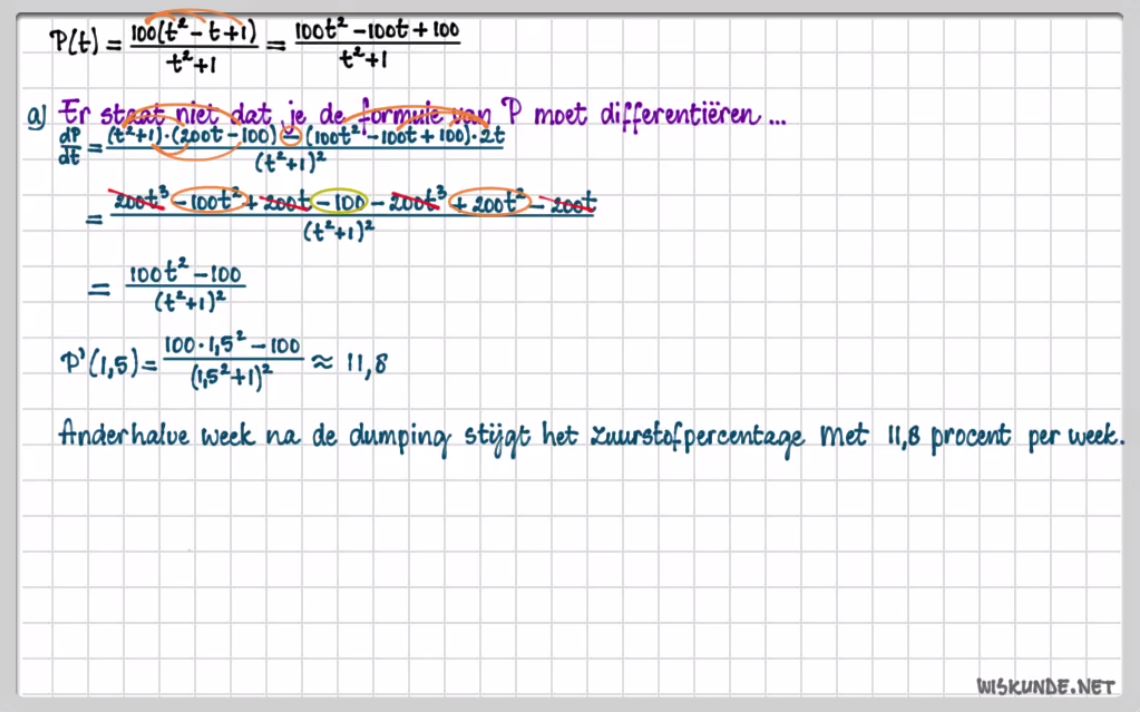 P(t) = 100(t² - t + 1) / t² + 1 = 100t² - 100t + 100 / t² + 1
a) Er staat niet dat je de formule van P moet differentiëren ...
dP/dt = (t²+1)·(200t - 100) - (100t² - 100t + 100)·2t / (t²+1)²
= 200t³ - 100t² + 200t - 100 - 200t³ + 200t² - 200t / (t²+1)²
= 100t² - 100 / (t²+1)²
P'(1,5) = 100·1,5² - 100 / (1,5²+1)² ≈ 11,8
Anderhalve week na de dumping stijgt het zuurstofpercentage met 11,8 procent per week.
WISKUNDE.NET